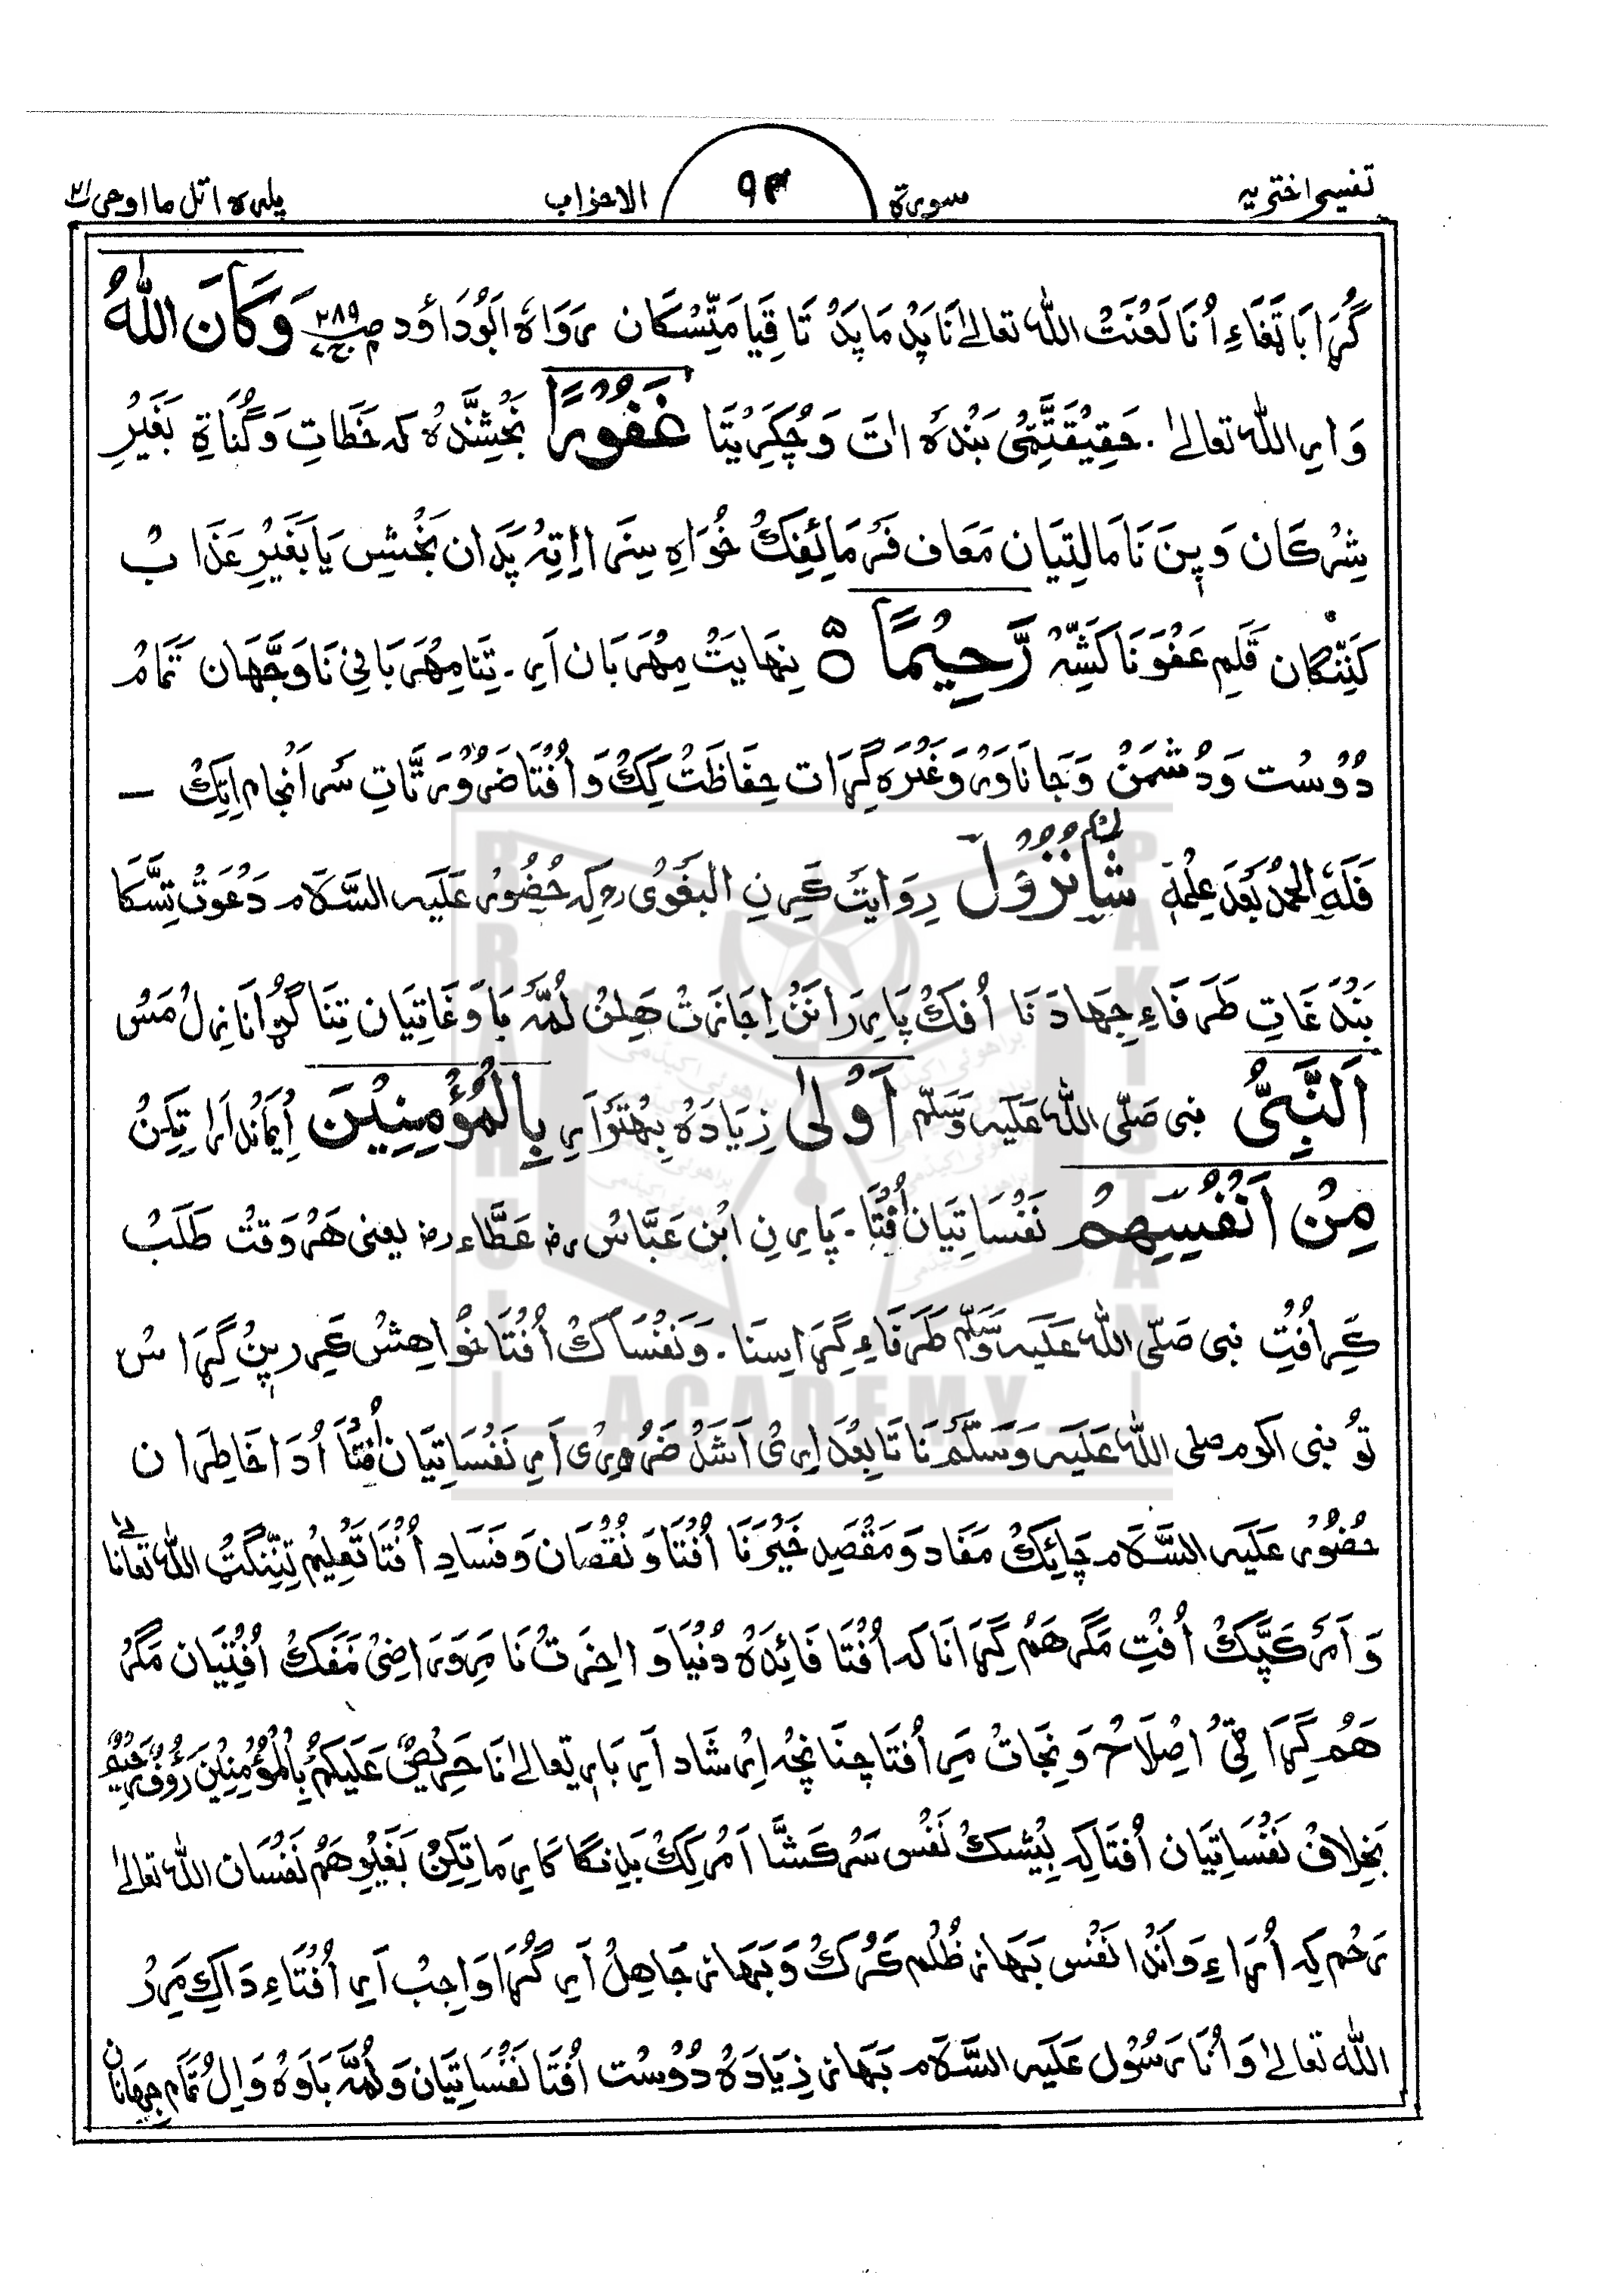 تفسیر اختریہ سورۃ ۹۳ الاحزاب پارہ اتل ما اوحی ۲۱
گُہَڑا بَاتَغَاءِ اُنَا لَعْنَتْ اللہ تعالیٰ نَا پَدْ مَا پَدْ تَا قِیَامَتِسْکَان رَوَاہُ اَبُوْدَاؤد ص۲۸۹ ج۲ وَكَانَ اللّٰهُ
وَ اَرِ اللہ تعالیٰ۔ حَقِیْقَتَّئِی بَنْدَہ اٰتَ وَ جُکَرِیْتَا غَفُوْرًا بَخْشِنْدَہ کہ خَطَاتِ وَ گُنَاہِ بَغَیْرِ
شِرْکَان وَ پِنَ نَا مَالِتِیَان مَعَاف فَرْمَائِفِکْ خُوَاہِ سِزَا اِتِہْ پَدَان بَخْشِس یَا بَغَیْرِ عَذَابْ
کَنِنْگَان قَلَمِ عَفْوَ نَا کَشِّہْ رَّحِيْمًا ۵ نِهَایَتْ مِهْرَبَان اَرِ۔ تِنَا مِهْرَبَانِی نَا وَجْہَان تَمَامْ
دُوْسْت وَ دُشْمَنْ وَ جَانَاوَرْ وَغَیْرَہ گِرَاتِ حِفَاظَتْ کِکْ وَ اُفْتَا ضَرُوْرَتَّاتِ سَرْ اَنْجَام اِتِکْ ـــ
فَلَہٗ الْحَمْدُ بَعْدَ عِلْمِہٖ شَانِ نُزُوْل رِوَایَتْ کَرِنِ البَغَوِی رح کہ حُضُوْر عَلَیْہِ السَّلَام دَعْوَتْ تِسَّکَا
بَنْدَغَاتِ طَرَفَاءِ جِهَادَ نَا اُفَکْ پَارِرَا نَنْ اِجَازَتْ هَلِنْ لُمَّہ بَاوَغَاتِیَان تِنَا گُڑا نَازِلْ مَسْ
اَلنَّبِيُّ نبی صَلَّی اللہ عَلَیْہِ وَسَلَّم اَوْلٰى زِیَادَہ بِهْتَرَ اَرِ بِالْمُؤْمِنِيْنَ اِیْمَانْدَارَا تِکِنْ
مِنْ اَنْفُسِهِمْ نَفْسَاتِیَان اُفْتَا۔ پَارِنِ ابْن عَبَّاسْ رض عَطَّاء رض یعنی هَرْ وَقْتْ طَلَبْ
کَرِ اُفْتِ نبی صَلَّی اللہ عَلَیْہِ وَسَلَّم طَرَفَاءِ گِرَا سِنَا۔ وَ نَفْسَاکْ اُفْتَا خُوَاهِشْ کَرِر پِنْ گِرَا سْ
تُو نبی اکرم صلی اللہ عَلَیْہِ وَسَلَّمْ نَا تَابِعْدَارِی اَشَدْ ضَرُوْرِی اَرِ نَفْسَاتِیَان اُفْتَا اُ دَا خَاطِرَان
حُضُوْر عَلَیْہِ السَّلَام چَائِکْ مَفَاد وَ مَقْصَدِ خَیْرَ نَا اُفْتَا وَ نُقْصَان وَ فَسَادِ اُفْتَا تَعْلِیْم تِنِّنْگَتْ اللہ تعالیٰ نا
وَ اَمْر کَپَّکْ اُفْتِ مَگَر هَمْ گِرَانَا کہ اُفْتَا فَائِدَہ دُنْیَا وَ اٰخِرَتْ نَا مَرِ وَ رَاضِیْ مَفَکْ اُفْتِیَان مَگَرْ
هَمْ گِرَا قِیْ اِصْلَاحْ وَ نِجَاتْ مَرِ اُفْتَا چِنَانْچِہْ اِرْشَاد اَرِ بَارِ تعالیٰ نَا حَرِیْصٌ عَلَیْکُمْ بِالْمُؤْمِنِیْنَ رَءُوْفٌ رَّحِیْمٌ
بَخِلَافْ نَفْسَاتِیَان اُفْتَا کہ بِیْشَکْ نَفْس سَرْکَشَّا اَمْر کِکْ بَلِ نَنْگَا کَارِمَا تِکِنْ بَغَیْرِ هَمْ نَفْسَان اللہ تعالیٰ
رَحْم کہ اُرَاءِ وَ اَنْدَا نَفْس بَهَازْ ظُلْم کَرُکْ وَ بَهَازْ جَاهِلْ اَرِ گُڑا وَاجِبْ اَرِ اُفْتَاءِ دَاکِ مَرِرْ
اللہ تعالیٰ وَ اُنَا رَسُوْل عَلَیْہِ السَّلَام بَهَازْ زِیَادَہ دُوْسْت اُفْتَا نَفْسَاتِیَان وَ لُمَّہ بَاوَہ وَ اِلْ تَمَام جِهَانَان